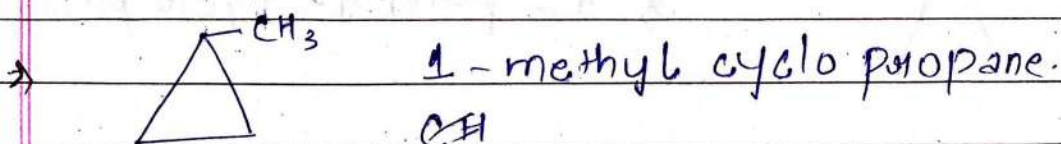 CH3
→ 1-methyl cyclo propane.